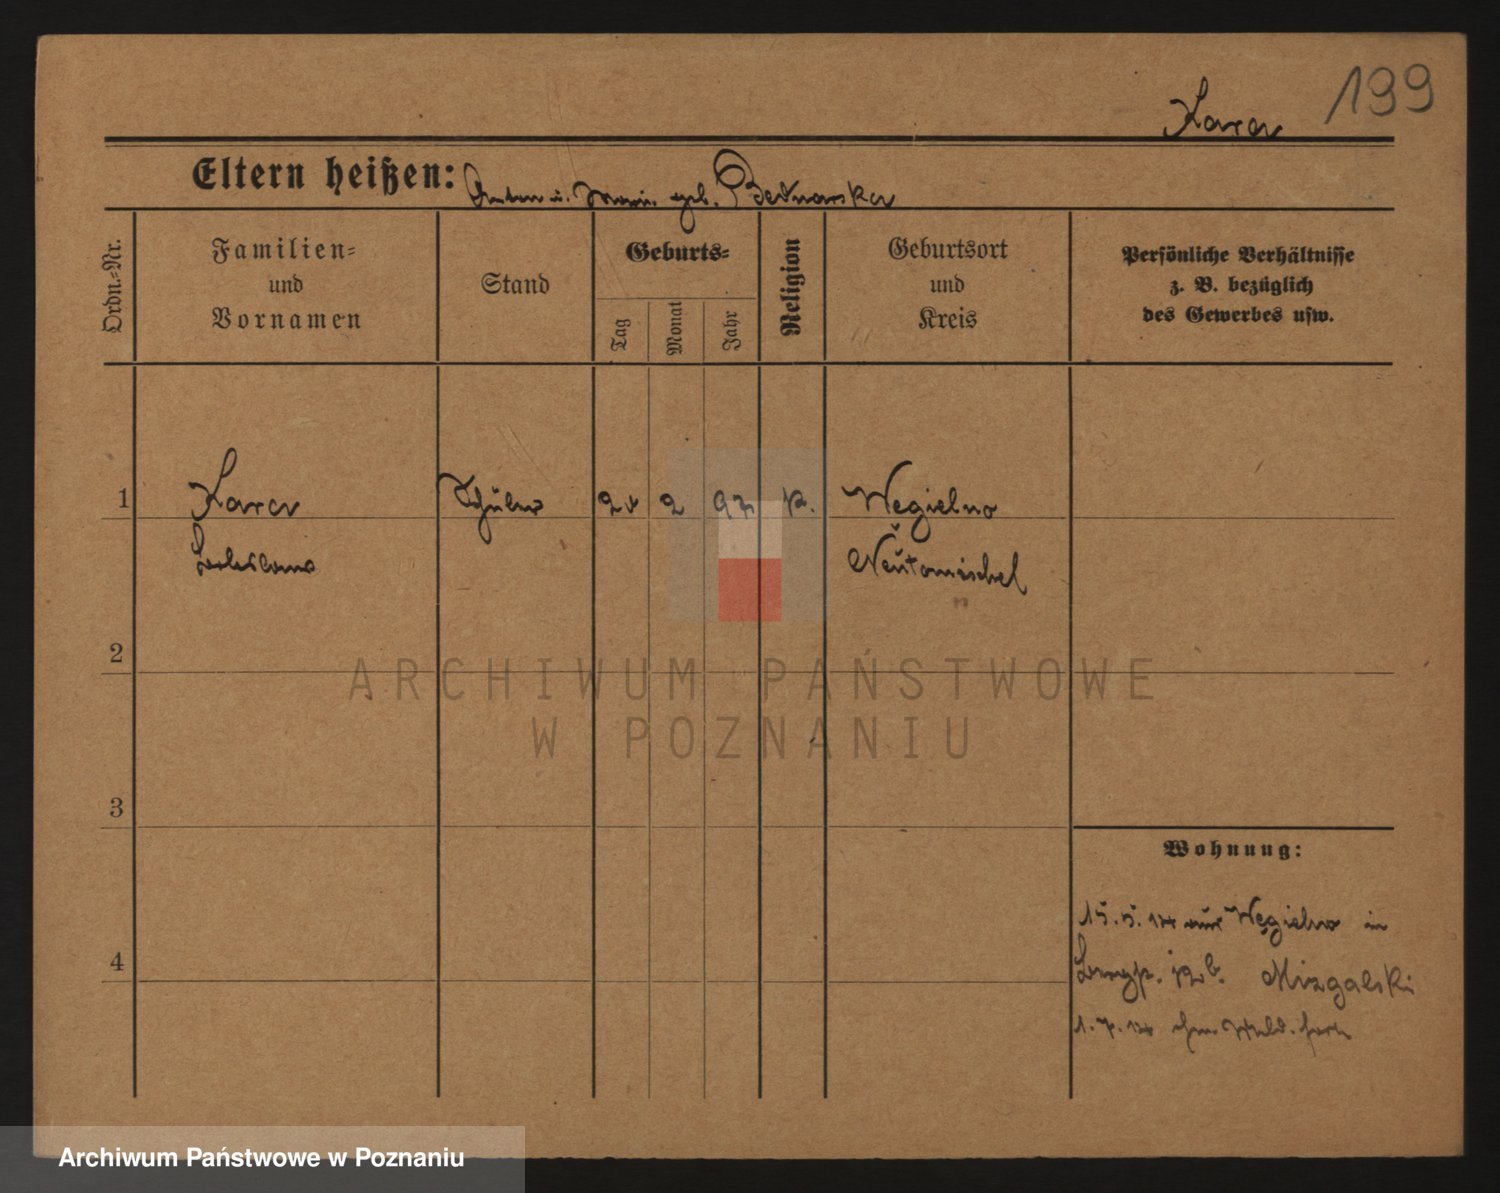 199
Kara
Eltern heißen: Anton u. Marie geb. Bednarska
Ordn.=Nr.
Familien=
und
Vornamen
Stand
Geburts=
Tag
Monat
Jahr
Religion
Geburtsort
und
Kreis
Persönliche Verhältnisse
z. B. bezüglich
des Gewerbes usw.
1 Kara Schüler 2 97 k. Węgielno
Boleslaus Neutomischel
2
ARCHIWUM PAŃSTWOWE
W POZNANIU
3
Wohnung:
15.5.14 aus Węgielno in
12b. Mizgalski
4
1.7.14 ohne Meld. fort
Archiwum Państwowe w Poznaniu